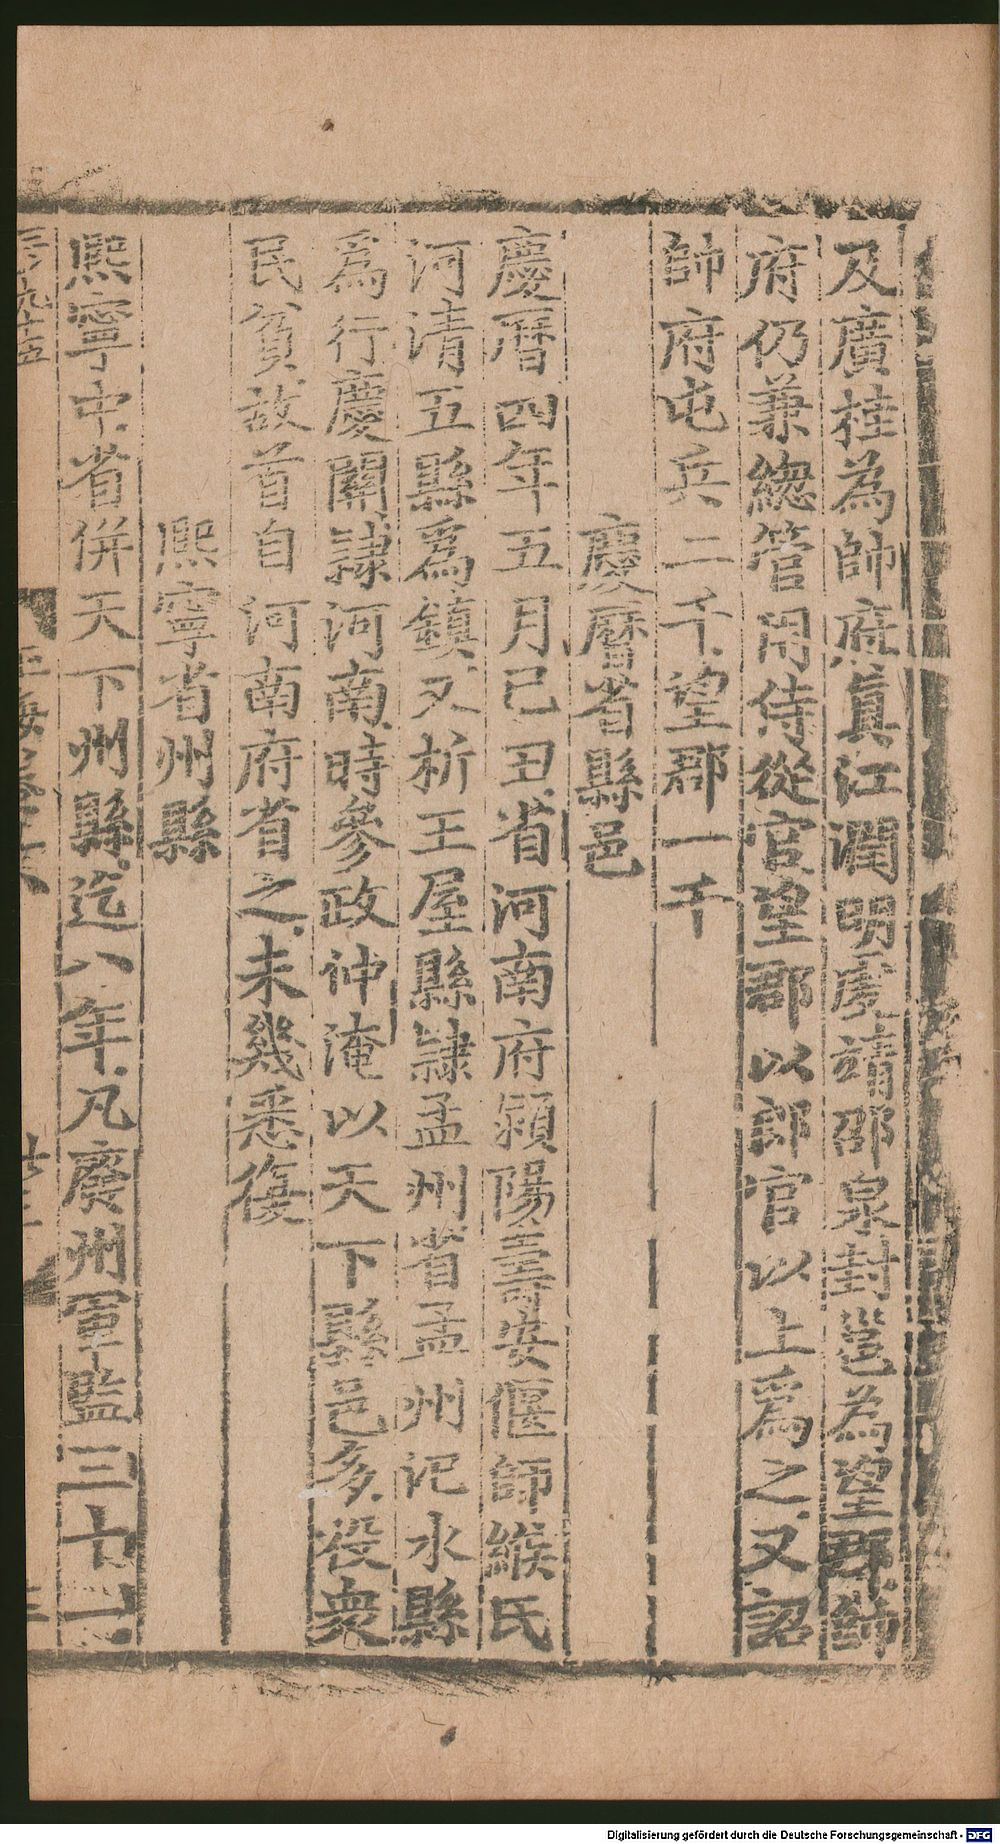 及廣桂為帥府眞江潤明䖍靖邵泉封邕為望郡帥
府仍兼緫管用侍從官望郡以郎官以上爲之又詔
帥府屯兵二千望郡一千
慶曆省縣邑
慶曆四年五月己丑省河南府潁陽壽安偃師緱氏
河清五縣爲鎮又析王屋縣隷孟州省孟州汜水縣
爲行慶關隷河南時參政仲淹以天下縣邑多役衆
民貧故首自河南府省之未幾悉復
熙寧省州縣
熙寧中省併天下州縣迄八年凡廢州軍監三十一
Digitalisierung gefördert durch die Deutsche Forschungsgemeinschaft - DFG